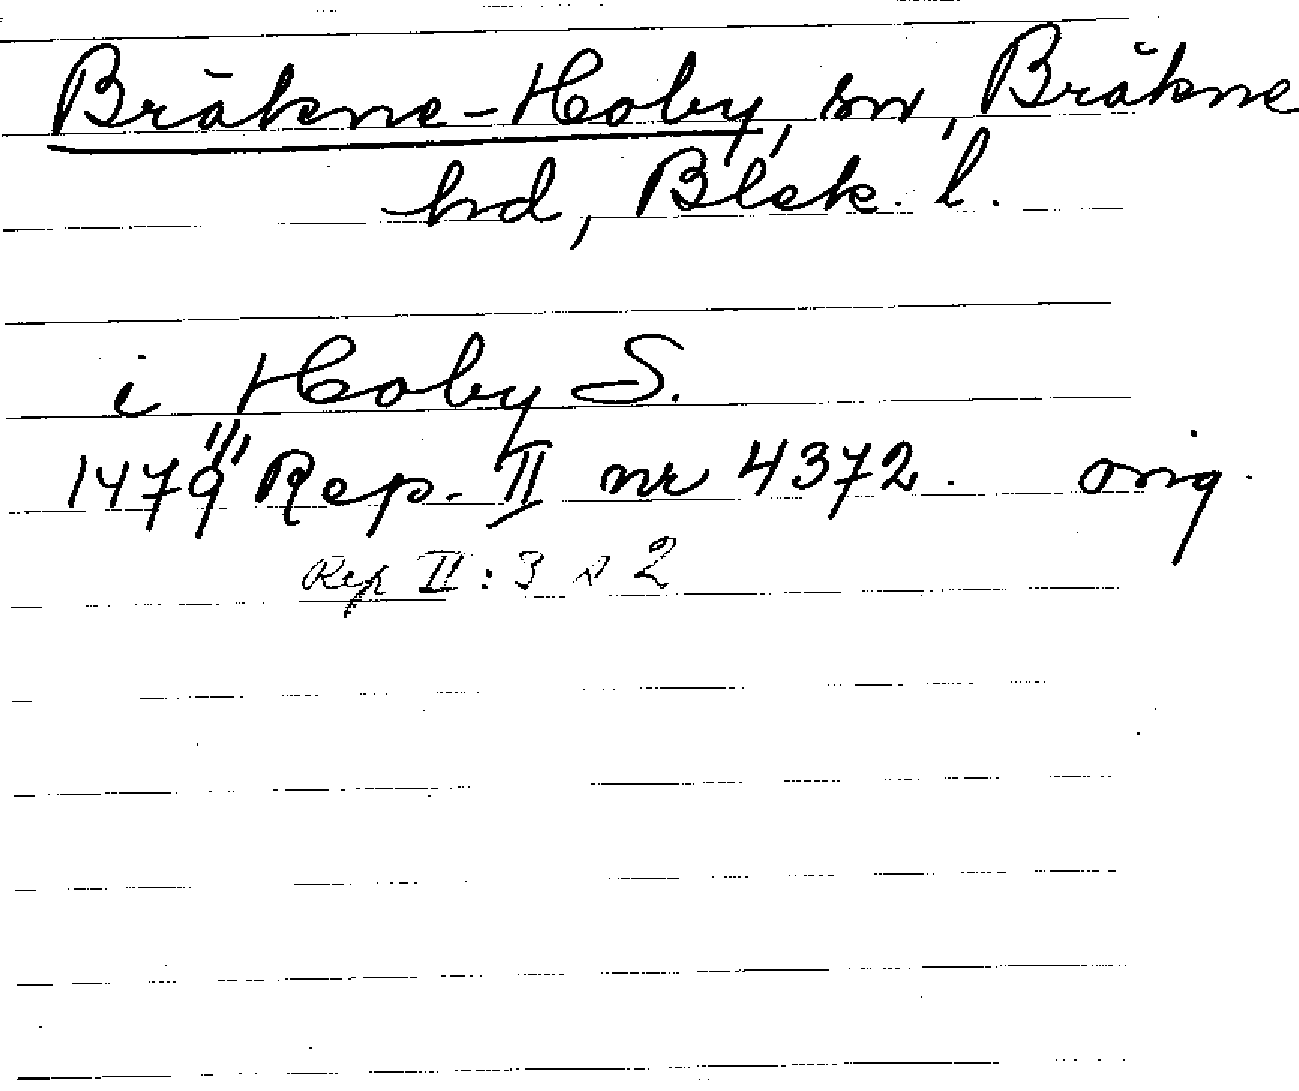 Bräkne-Hoby, sn, Bräkne
hd, Blek. l.
i Hoby S.
1479 Rep. II nr 4372. orig.
Rep II: 3 s 2